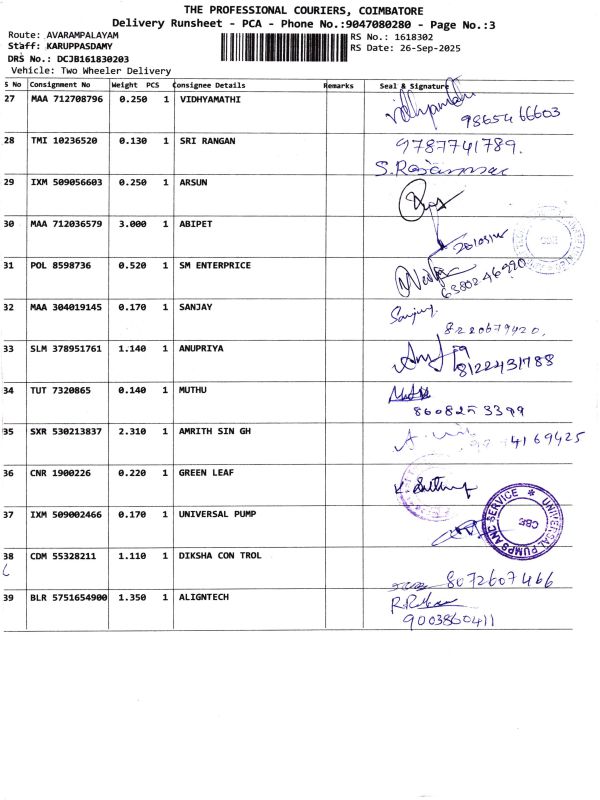 THE PROFESSIONAL COURIERS, COIMBATORE
Delivery Runsheet - PCA - Phone No.:9047080280 - Page No.:3
Route: AVARAMPALAYAM
Staff: KARUPPASDAMY
DRS No.: DCJB161830203
Vehicle: Two Wheeler Delivery
RS No.: 1618302
RS Date: 26-Sep-2025
S No Consignment No Weight PCS Consignee Details Remarks Seal & Signature
27 MAA 712708796 0.250 1 VIDHYAMATHI
9865466603
28 TMI 10236520 0.130 1 SRI RANGAN 9787741789.
29 IXM 509056603 0.250 1 ARSUN
30 MAA 712036579 3.000 1 ABIPET
31 POL 8598736 0.520 1 SM ENTERPRICE
6380246920
32 MAA 304019145 0.170 1 SANJAY Sanjay
8220679420.
33 SLM 378951761 1.140 1 ANUPRIYA
8122431788
34 TUT 7320865 0.140 1 MUTHU
8608253399
35 SXR 530213837 2.310 1 AMRITH SIN GH
4169425
36 CNR 1900226 0.220 1 GREEN LEAF
37 IXM 509002466 0.170 1 UNIVERSAL PUMP
UNIVERSAL PUMPS AND SERVICE * CBE
38 CDM 55328211 1.110 1 DIKSHA CON TROL
8072607466
39 BLR 5751654900 1.350 1 ALIGNTECH
9003860411